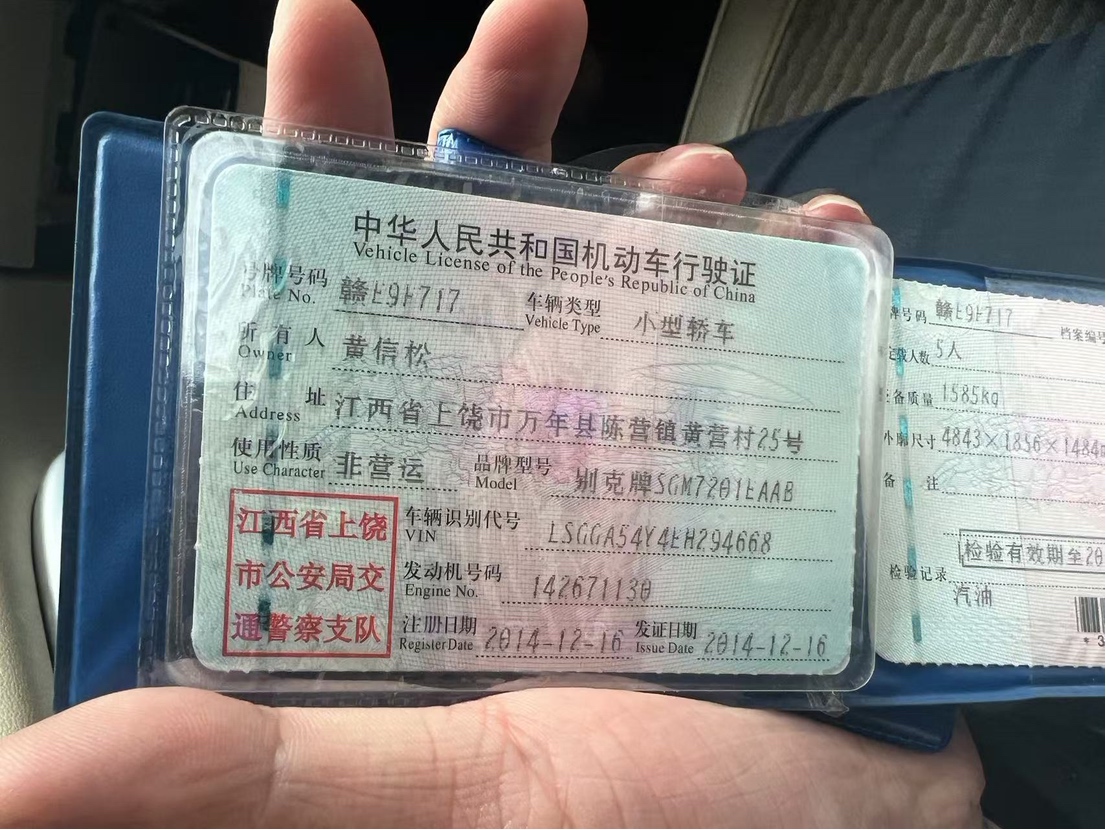 中华人民共和国机动车行驶证
Vehicle License of the People's Republic of China
号牌号码 赣E9E717 车辆类型 小型轿车
Plate No. Vehicle Type
所有人 黄信松
Owner
住址 江西省上饶市万年县陈营镇黄营村25号
Address
使用性质 非营运 品牌型号 别克牌SGM7201EAAB
Use Character Model
江西省上饶
市公安局交
通警察支队
车辆识别代号 LSGGA54Y4EH294668
VIN
发动机号码 142671130
Engine No.
注册日期 2014-12-16 发证日期 2014-12-16
Register Date Issue Date
牌号码 赣E9E717 档案编号
定载人数 5人
备质量 1585kg
外廓尺寸 4843×1856×1484
备注
检验有效期至20
检验记录
汽油